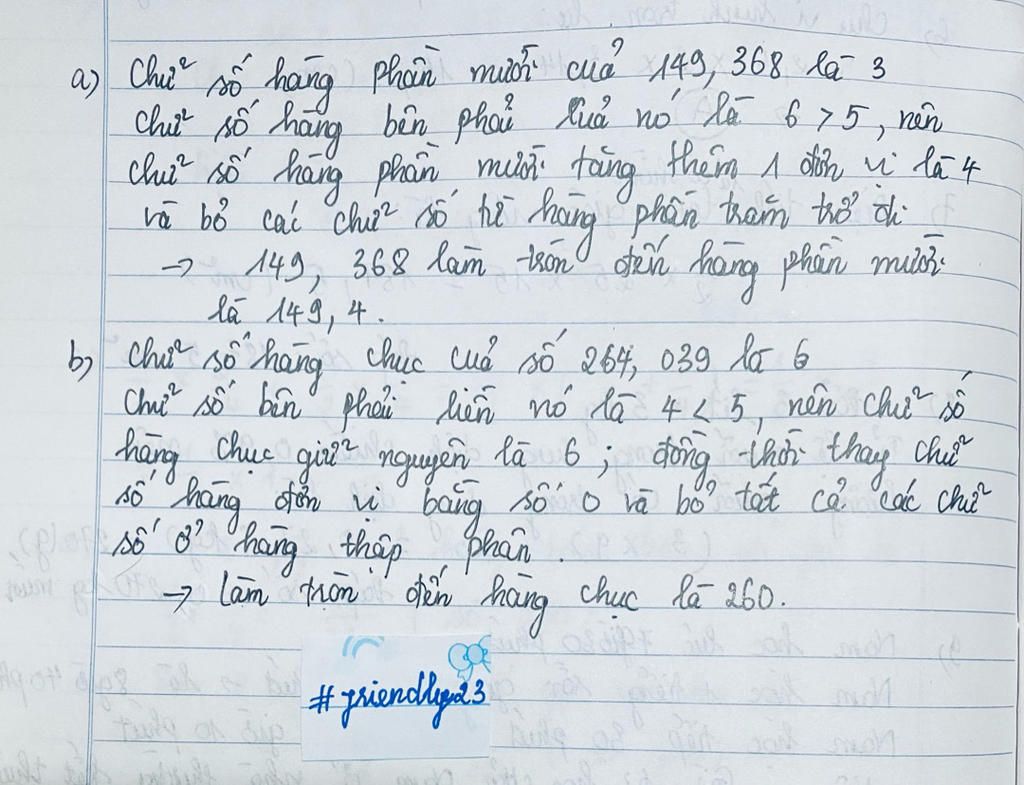 a) Chữ số hàng phần mười của 149, 368 là 3
Chữ số hàng bên phải của nó là 6 > 5, nên
chữ số hàng phần mười tăng thêm 1 đơn vị là 4
và bỏ các chữ số từ hàng phần trăm trở đi
→ 149, 368 làm tròn đến hàng phần mười
là 149, 4.
b) Chữ số hàng chục của số 264, 039 là 6
Chữ số bên phải liền nó là 4 < 5, nên chữ số
hàng chục giữ nguyên là 6 ; đồng thời thay chữ
số hàng đơn vị bằng số 0 và bỏ tất cả các chữ
số ở hàng thập phân.
→ Làm tròn đến hàng chục là 260.
#friendly23